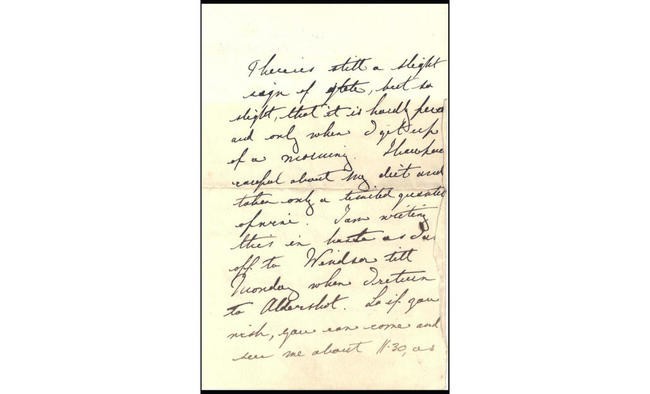 There is still a slight
sign of gleet, but so
slight, that it is hardly perc
and only when I get up
of a morning. I have been
careful about my diet and
taken only a limited quantit
of wine. I am writing
this in haste as I'm
off to Windsor till
Monday when I return
to Aldershot. So if you
wish, you can come and
see me about 11.30, as